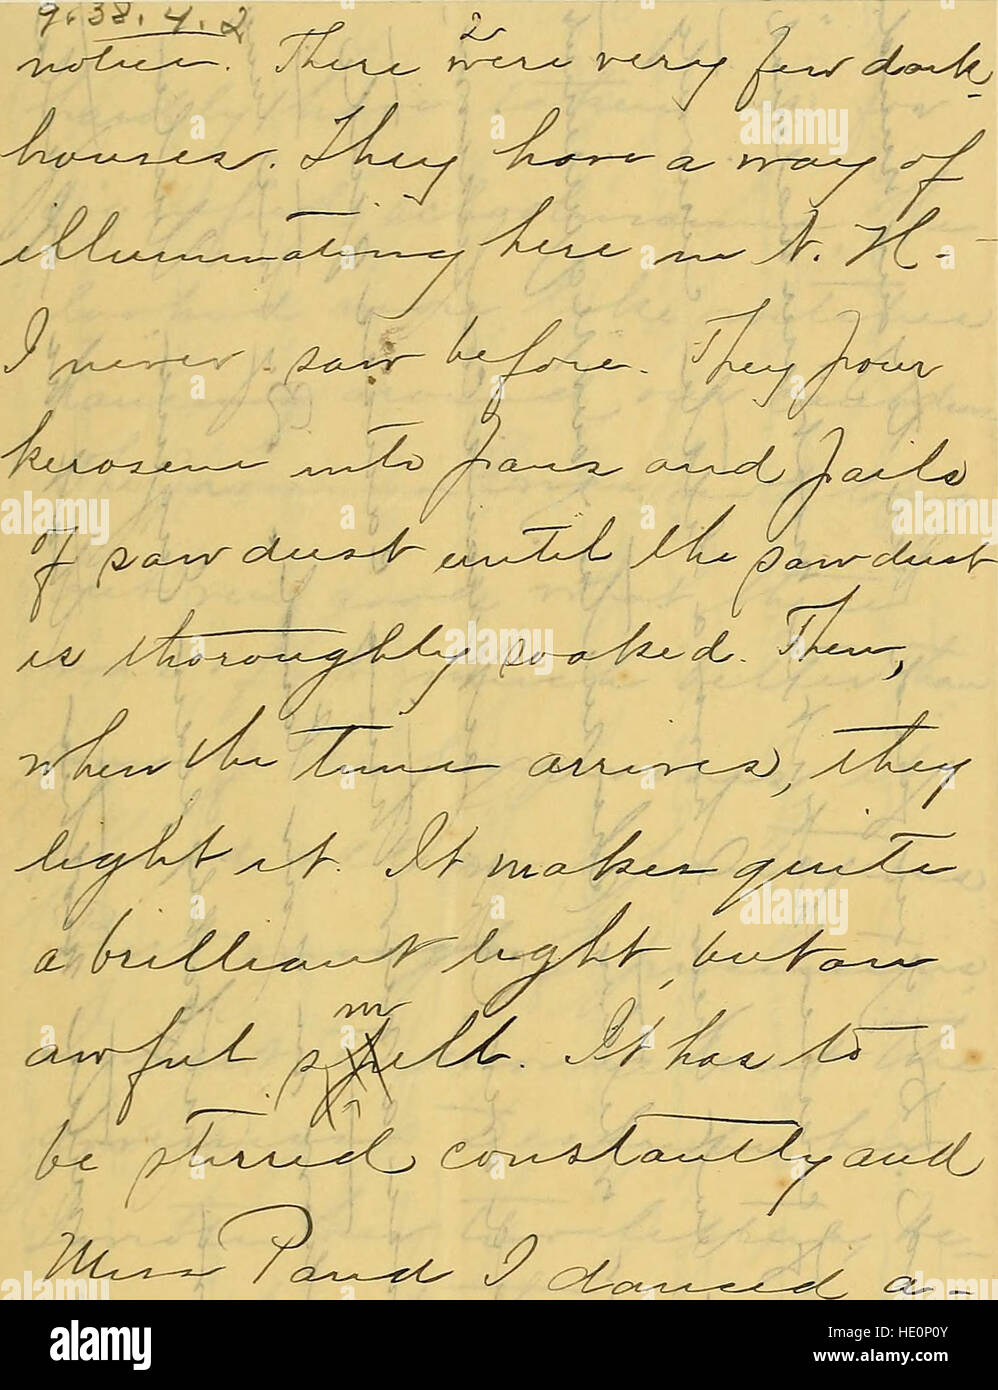 9.38.4.2
2
notice. There were very few dark
houses. They have a way of
illuminating here in N. H. -
I never saw before. They pour
kerosene into pans and pails
of sawdust until the sawdust
is thoroughly soaked. Then,
when the time arrives, they
light it. It makes quite
a brilliant light, but an
awful smell. It has to
be stirred constantly and
Miss Pand I danced a-
alamy
Image ID: HE0P0Y
www.alamy.com